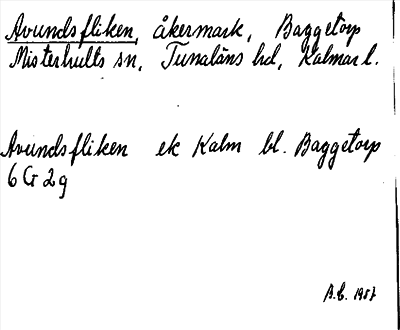 Avundsfliken, åkermark, Baggetorp
Misterhults sn, Tunaläns hd, Kalmar l.
Avundsfliken ek Kalm bl. Baggetorp
6 G 2 g
B.E. 1957